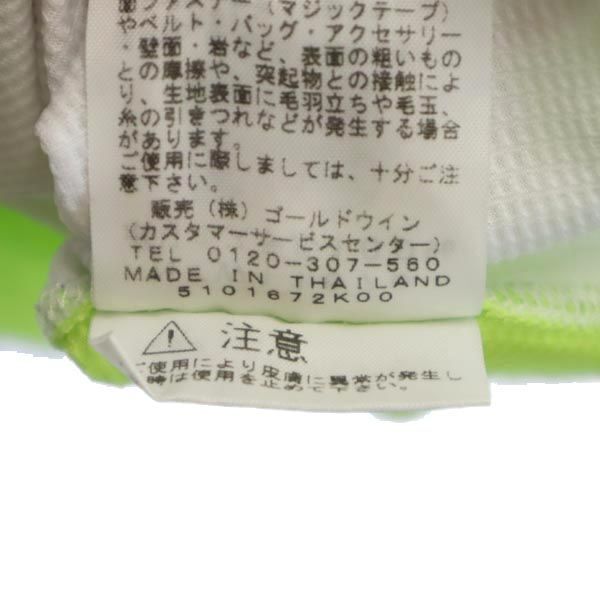 面ファスナー（マジックテープ）
やベルト・バッグ・アクセサリー
・壁面・岩など、表面の粗いもの
との摩擦や、突起物との接触によ
り、生地表面に毛羽立ちや毛玉、
糸の引きつれなどが発生する場合
があります。
ご使用に際しましては、十分ご注
意下さい。
販売（株）ゴールドウイン
（カスタマーサービスセンター）
TEL 0120-307-560
MADE IN THAILAND
5101672K00
注意
ご使用により皮膚に異常が発生し
時は使用を止めて下さい。